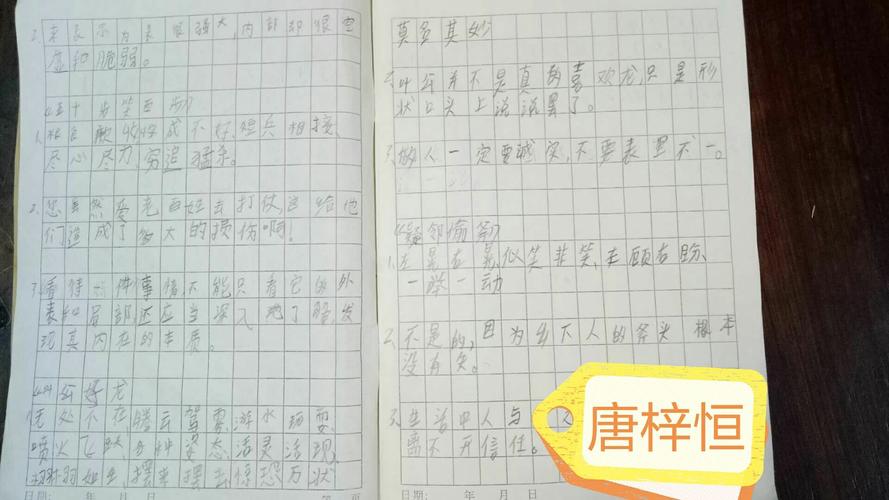 来表示为表很强大,内部却很空
虚和脆弱。
《五十步笑百步》
收成不好,短兵相接,
尽心尽力,穷追猛杀。
2、您虽然爱老百姓去打仗,这给他
们造成了多大的损伤啊!
3、看待一件事情,不能只看它的外
表和局部,还应当深入地了解,发
现其内在的本质。
《叶公好龙
无处不在,腾云驾雾,游水玩耍
喷火飞跃,多种姿态活灵活现,
栩栩如生,摆来摆去惊恐万状
日期: 年 月 日 页
莫名其妙
2、叶公并不是真的喜欢龙,只是形
状口头上说说罢了。
3、做人一定要诚实,不要表里不一。
《疑邻偷斧》
1、左晃右晃,似笑非笑,左顾右盼、
一举一动
2、不是的,因为乡下人的斧头根本
没有失。
3、生活中人与
离不开信任。
日期: 年 月 日
唐梓恒